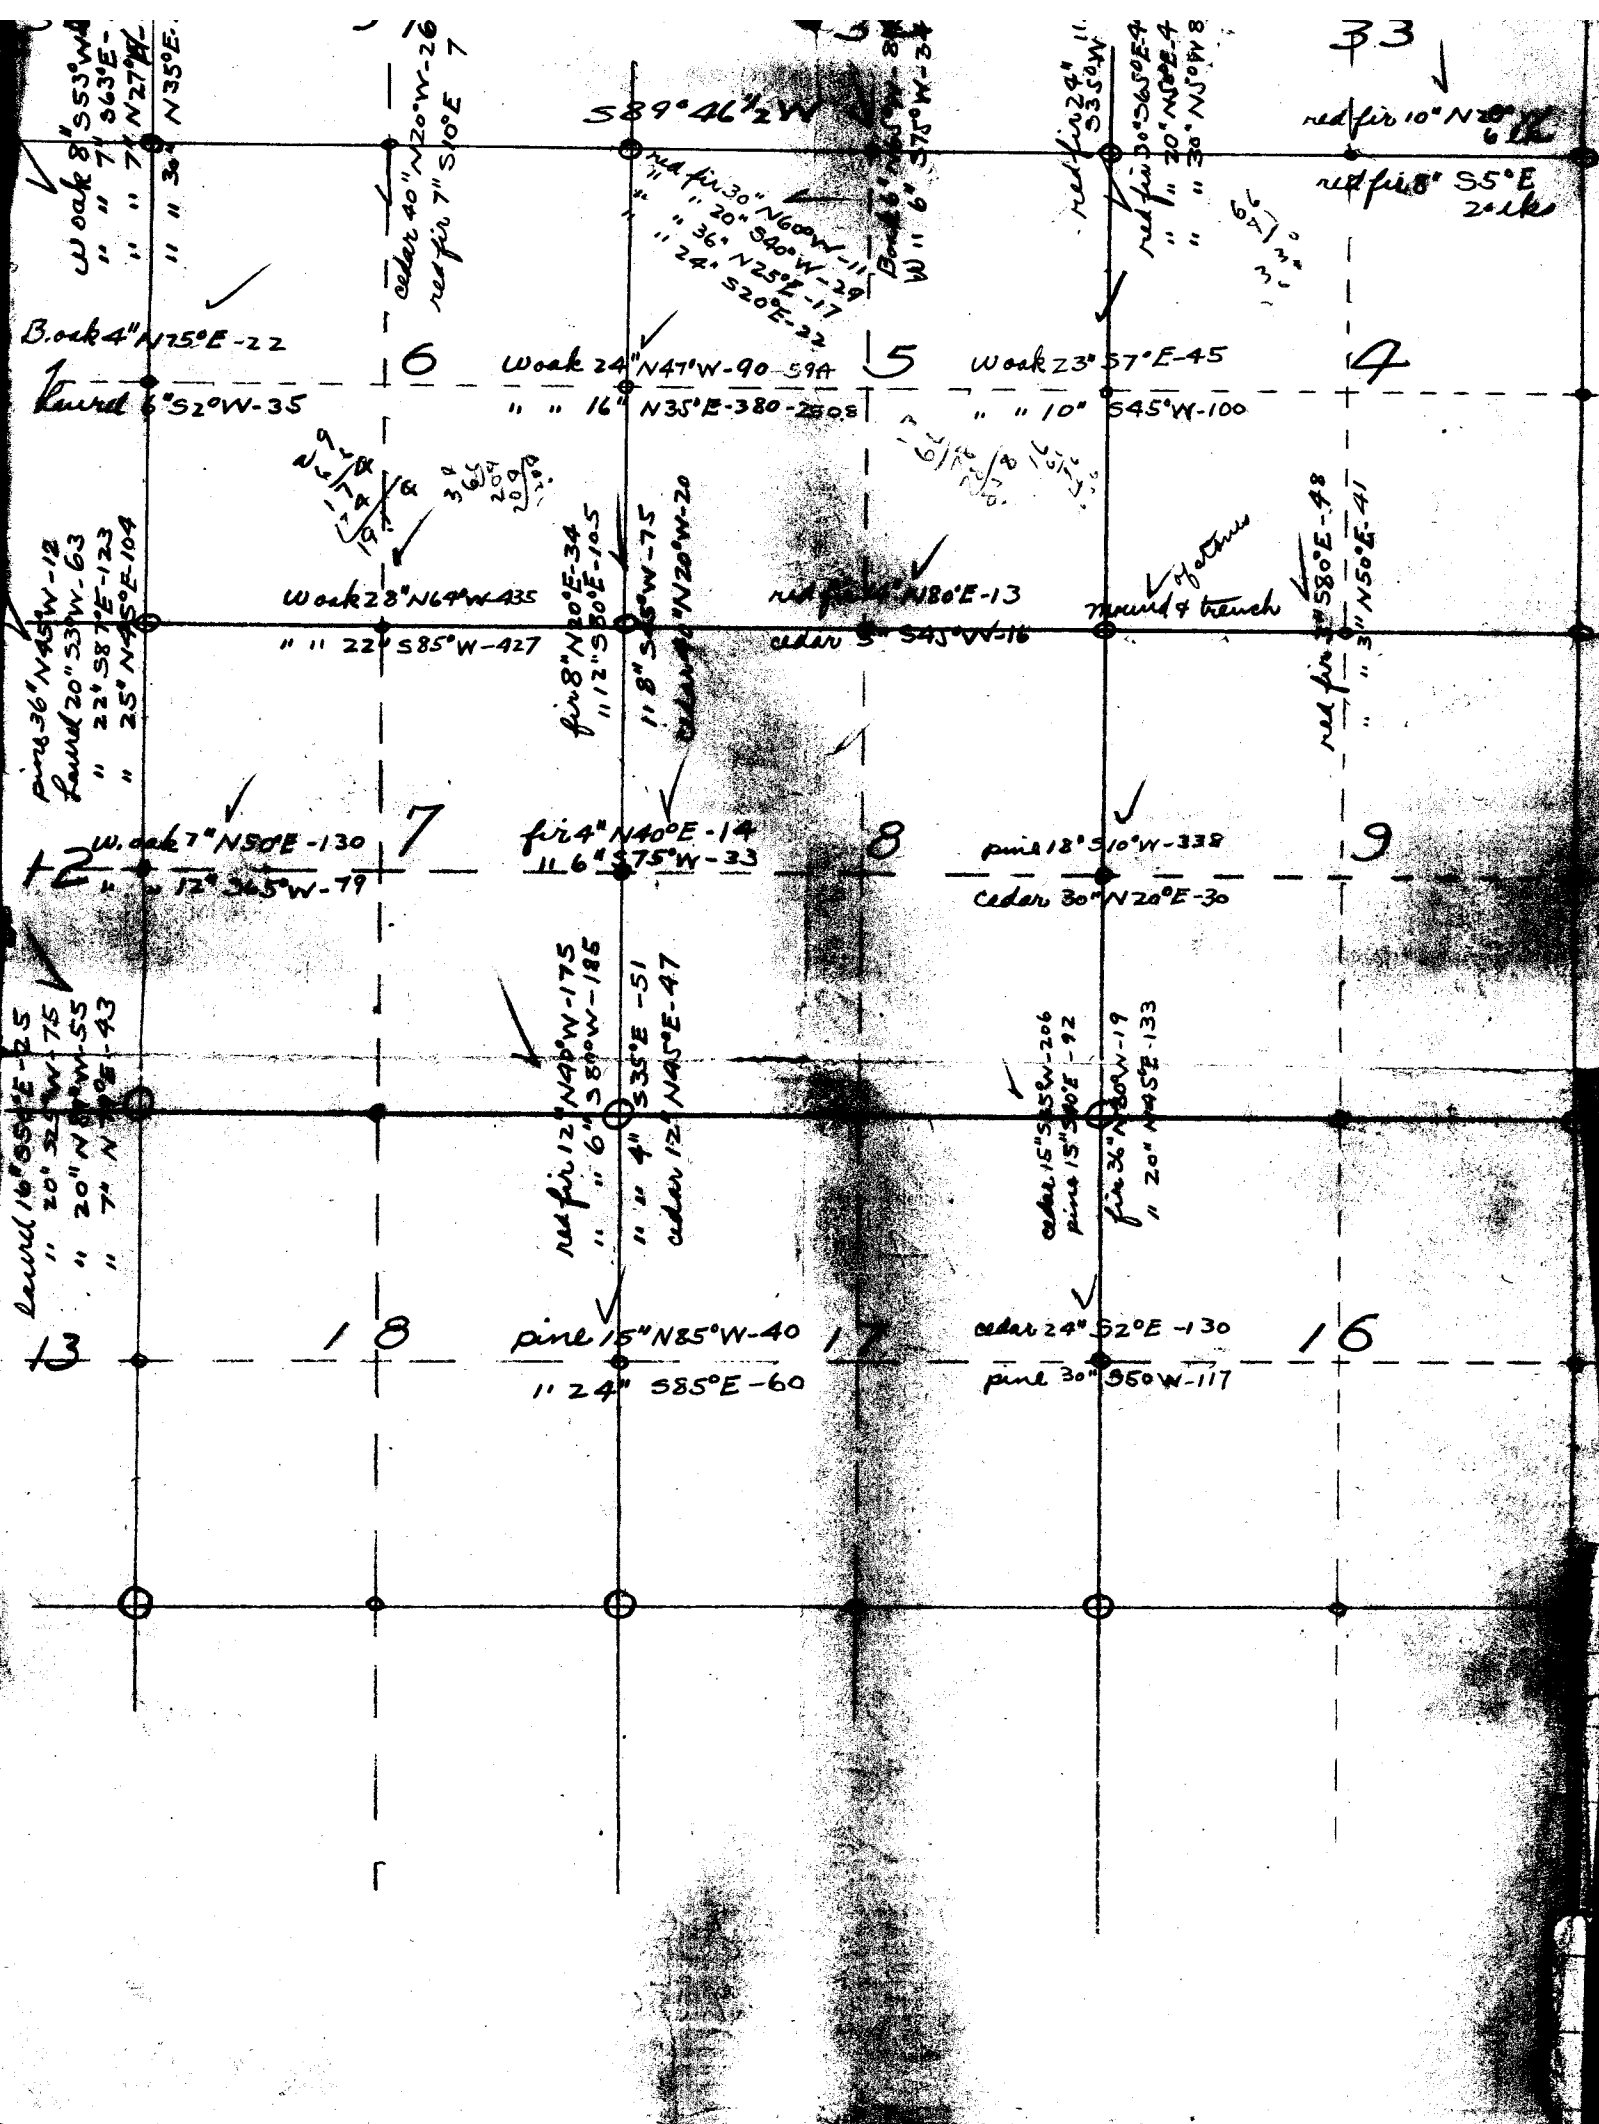 33
W oak 8" S53°W
" " 7" S63°E-
" " 7" N27°W-
" " 30" N35°E.
cedar 40" N20°W-26
red fir 7" S10°E 7
S89°46'½W
red fir 30" N60°W-11
" " 20" S40°W-29
" " 36" N25°E-17
" 24" S20°E-22
W " 6" S75°W-34
red fir 24" S35°W
red fir 30" S65°E-4
" " 20" N50°E-4
" " 30" N50°W 8
red fir 10" N20°W
6 lks
red fir 8" S5°E
2 lks
B.oak 4" N75°E-22
laurel 6" S2°W-35
6
W oak 24" N47°W-90 59A
" " 16" N35°E-380-2508
5
W oak 23" S7°E-45
" " 10" S45°W-100
4
pine 36" N45°W-12
laurel 20" S39°W-63
" 22" S87°E-123
" 25" N45°E-104
W oak 28" N64°W-435
" " 22" S85°W-427
fir 8" N20°E-34
" 12" S80°E-105
" 8" S45°W-75
cedar N20°W-20
red fir N80°E-13
cedar 5" S45°W-16
mound & trench
of stones
red fir 3" S80°E-48
" " 3" N50°E-41
12
W. oak 7" N50°E-130
" " 12" S65°W-79
7
fir 4" N40°E-14
" 6" S75°W-33
8
pine 18" S10°W-338
cedar 30" N20°E-30
9
laurel 16" S50°E-25
" 20" S25°W-75
" 20" N W-55
" 7" N E-43
red fir 12" N40°W-175
" " 6" S80°W-185
" " 4" S35°E-51
cedar 12" N45°E-47
cedar 15" S25°W-206
pine 15" S40°E-92
fir 36" N80°W-19
" 20" N45°E-133
13
18
pine 15" N85°W-40
" 24" S85°E-60
17
cedar 24" S2°E-130
pine 30" S50W-117
16